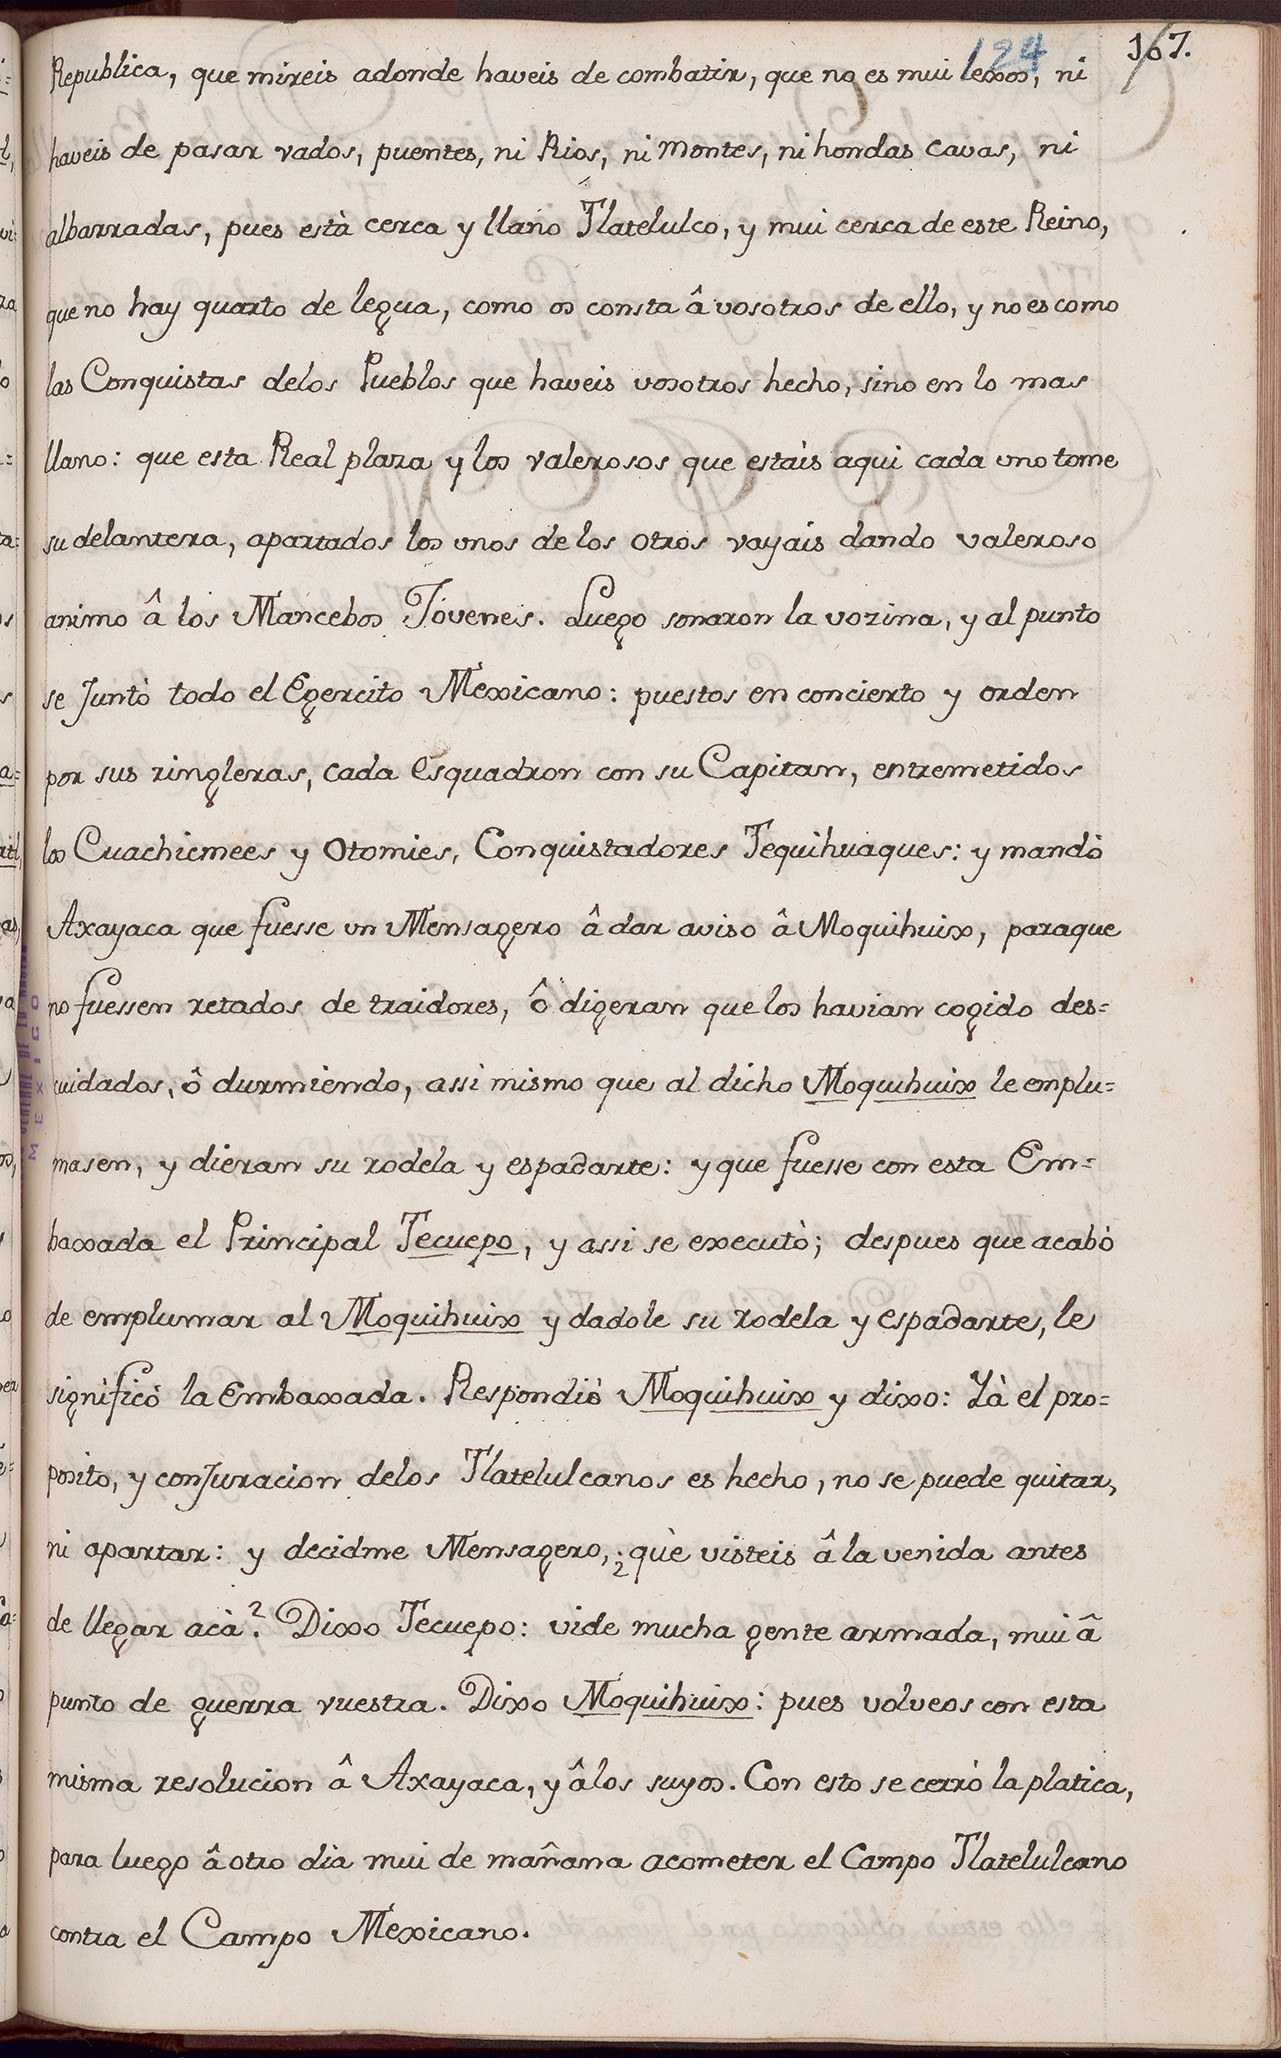 124
167.
Republica, que mireis adonde haveis de combatir, que no es mui lexos, ni
haveis de pasar vados, puentes, ni Rios, ni Montes, ni hondas cavas, ni
albarradas, pues està cerca y llano Tlatelulco, y mui cerca de este Reino,
que no hay quarto de legua, como os consta â vosotros de ello, y no es como
las Conquistas delos Pueblos que haveis vosotros hecho, sino en lo mas
llano: que esta Real plaza y los valerosos que estàis aqui cada uno tome
su delantera, apartados los unos de los otros vayais dando valeroso
animo â los Mancebos Jóvenes. Luego sonaron la vozina, y al punto
se Juntò todo el Egercito Mexicano: puestos en concierto y orden
por sus ringleras, cada Esquadron con su Capitan, entremetidos
los Cuachicmees y Otomies, Conquistadores Tequihuaques: y mandò
Axayaca que fuesse un Mensagero â dar aviso â Moquihuix, paraque
no fuessen retados de traidores, ô digeran que los havian cogido des=
cuidados, ô durmiendo, assi mismo que al dicho Moquihuix le emplu=
masen, y dieran su rodela y espadarte: y que fuesse con esta Em=
baxada el Principal Tecuepo, y assi se executò; despues que acabò
de emplumar al Moquihuix y dadole su rodela y espadarte, le
significò la Embaxada. Respondiò Moquihuix y dixo: Yà el pro=
posito, y conJuracion delos Tlatelulcanos es hecho, no se puede quitar,
ni apartar: y decidme Mensagero, ¿què visteis â la venida antes
de llegar acà? Dixo Tecuepo: vide mucha gente armada, mui â
punto de guerra vuestra. Dixo Moquihuix: pues volveos con esta
misma resolucion â Axayaca, y âlos suyos. Con esto se cerrò la platica,
para luego â otro dia mui de mañana acometer el Campo Tlatelulcano
contra el Campo Mexicano.
MEXICO